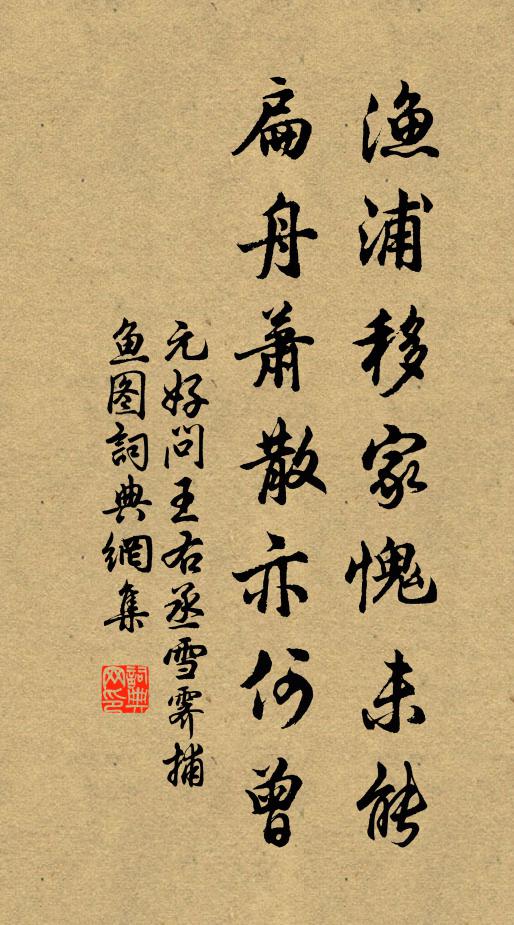 渔浦移家愧未能
扁舟萧散亦何曾
元好问王右丞雪霁捕
鱼图詞典網集
詞典
网印